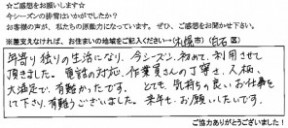 ☆ご感想をお願いします☆
今シーズンの排雪はいかがでしたか？
お客様の声が、私たちの原動力になっています。ぜひ、ご感想をお聞かせ下さい。
※差支えなければ、お住まいの地域をご記入ください→(札幌市 白石 区)
年寄り独りの生活になり、今シーズン、初めて、利用させて
頂きました。電話の対応、作業員さんの丁寧さ、人柄、
大満足で、有難かったです。とても、気持ちの良いお仕事を
して下さり、有難うございました。来年も、お願いしたいです。
ご協力ありがとうございました！